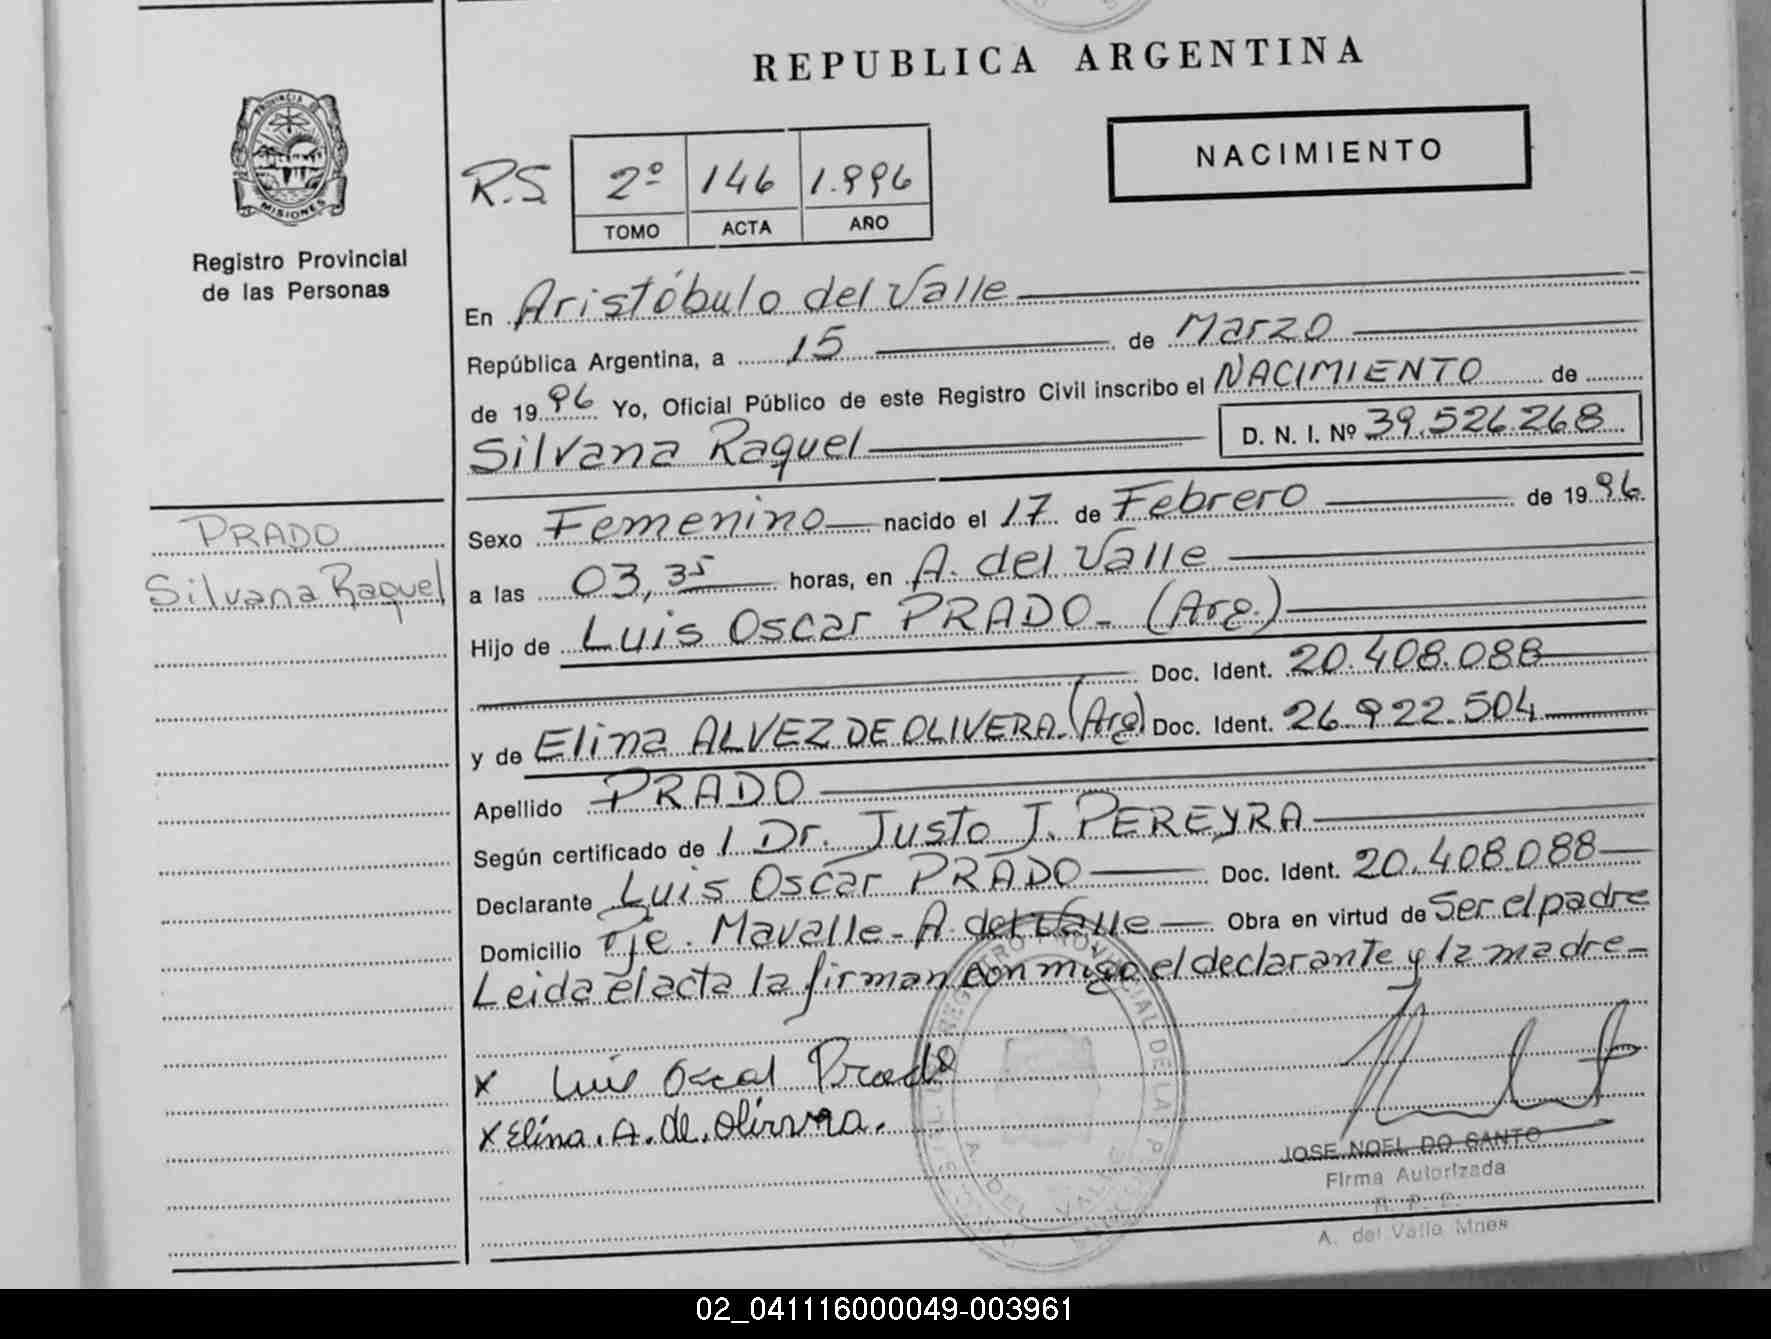 REPUBLICA ARGENTINA
NACIMIENTO
R.S
2º 146 1.996
TOMO ACTA AÑO
PROVINCIA DE
MISIONES
Registro Provincial
de las Personas
En Aristóbulo del Valle
República Argentina, a 15 de Marzo
de 1996 Yo, Oficial Público de este Registro Civil inscribo el NACIMIENTO de
Silvana Raquel D. N. I. Nº 39.526.268
PRADO
Silvana Raquel
Sexo Femenino nacido el 17 de Febrero de 1996.
a las 03,35 horas, en A. del Valle
Hijo de Luis Oscar PRADO- (Arg.)
Doc. Ident. 20.408.088
y de Elina ALVEZ DE OLIVERA-(Arg) Doc. Ident. 26.922.504
Apellido PRADO
Según certificado de 1 Dr. Justo J. PEREYRA
Declarante Luis Oscar PRADO Doc. Ident. 20.408.088
Domicilio Pje. Mavalle-A del Valle Obra en virtud de Ser el padre
Leida el acta la firman conmigo el declarante y la madre-
x Luis Oscar Prado
x Elina. A. de. Olivera.
JOSE NOEL DO SANTO
Firma Autorizada
R. P. P.
A. del Valle Mnes
02_041116000049-003961